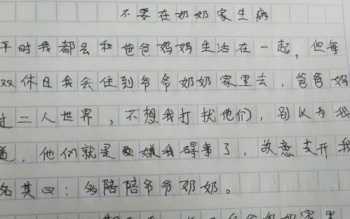 不要在奶奶家生病
平时我都会和爸爸妈妈生活在一起，但每
双休日我会住到爷爷奶奶家里去，爸爸妈
过二人世界，不想我打扰他们，别以为我
道，他们就是嫌我碍事了，故意支开我
名其曰：多陪陪爷爷奶奶。